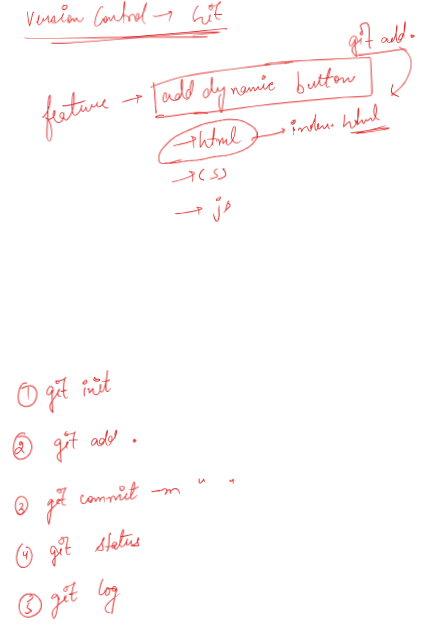 Version Control → Git
git add .
feature → add dynamic button
→ html → index.html
→ css
→ js
① git init
② git add .
③ git commit -m " "
④ git status
⑤ git log